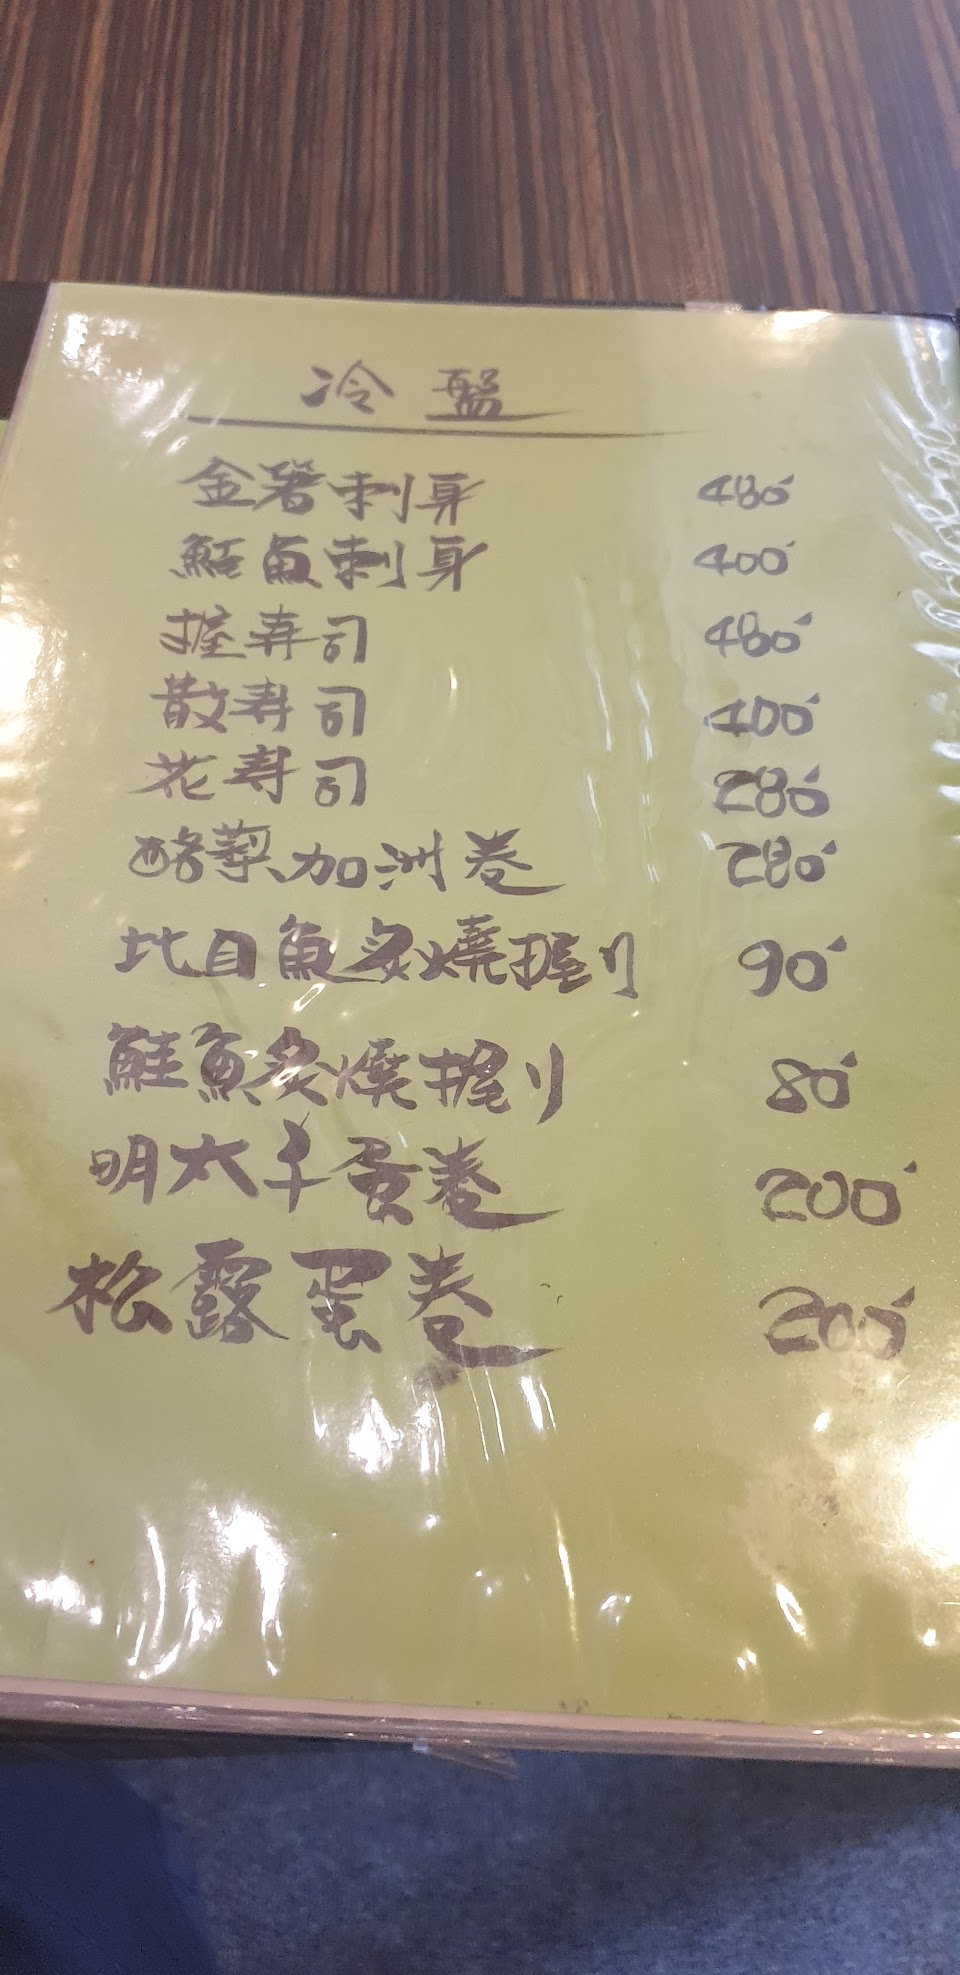 冷盤
金箸刺身 480
鮭魚刺身 400
握壽司 480
散壽司 400
花壽司 280
酪梨加洲卷 280
比目魚炙燒握り 90
鮭魚炙燒握り 80
明太子蛋卷 200
松露蛋卷 200